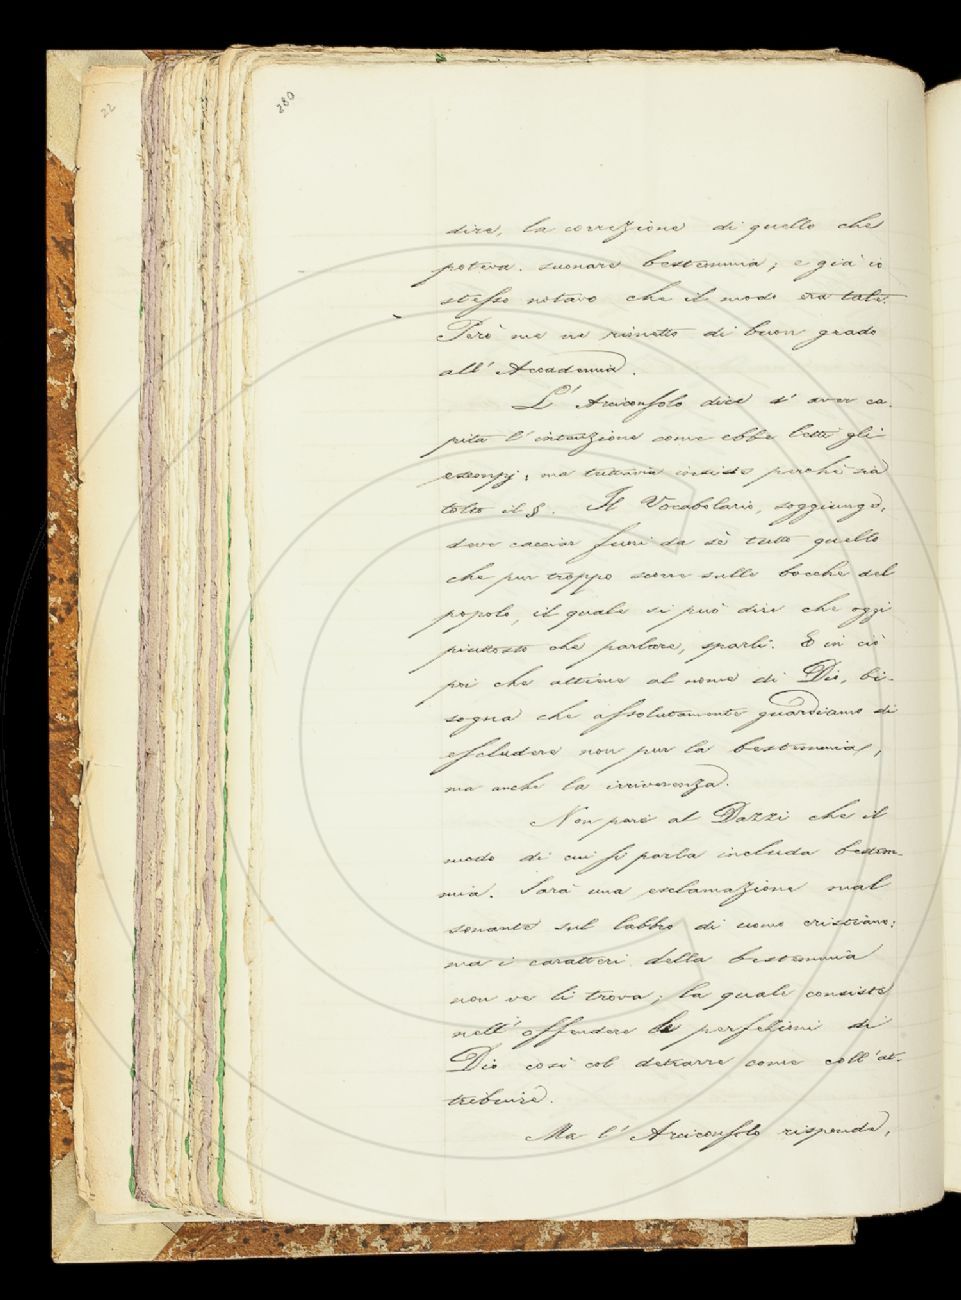 22
280
dire, la correzione di quello che
poteva suonare bestemmia; e già io
stesso notavo che il modo era tale.
Però me ne rimetto di buon grado
all'Accademia.
L'Arciconsolo dice d'aver ca-
pita l'intenzione come ebbe letti gli
esempj; ma tuttavia insiste perché sia
tolto il §. Il Vocabolario, soggiunge,
deve cacciar fuori da sè tutto quello
che pur troppo scorre sulle bocche del
popolo, il quale si può dire che oggi
piuttosto che parlare, sparli. E in ciò
poi che attiene al nome di Dio, bi-
sogna che assolutamente guardiamo di
escludere non pur la bestemmia,
ma anche la irriverenza.
Non pare al Dazzi che il
modo di cui si parla includa bestem-
mia. Sarà una esclamazione mal
sonante sul labbro di uomo cristiano;
ma i caratteri della bestemmia
non ve li trova; la quale consiste
nell'offendere le perfezioni di
Dio così col detrarre come coll'at-
tribuire.
Ma l'Arciconsolo risponde,